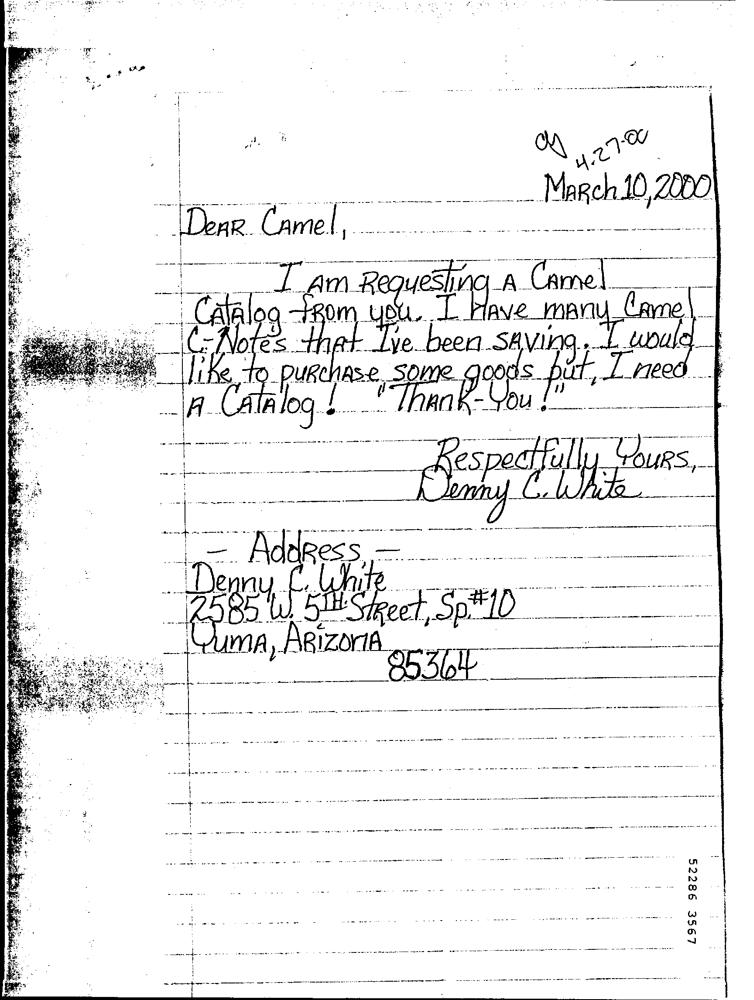 4-27-00
March 10, 2000
Dear Camel,
I Am Requesting A Camel
Catalog from you. I Have many Camel
C-Notes that I've been saving. I would
like to purchase some goods but, I need
A Catalog! "Thank-You!"
Respectfully Yours,
Denny C. White
- Address -
Denny C. White
2585 W. 5TH Street, Sp.#10
Yuma, Arizona
85364
52286 3567